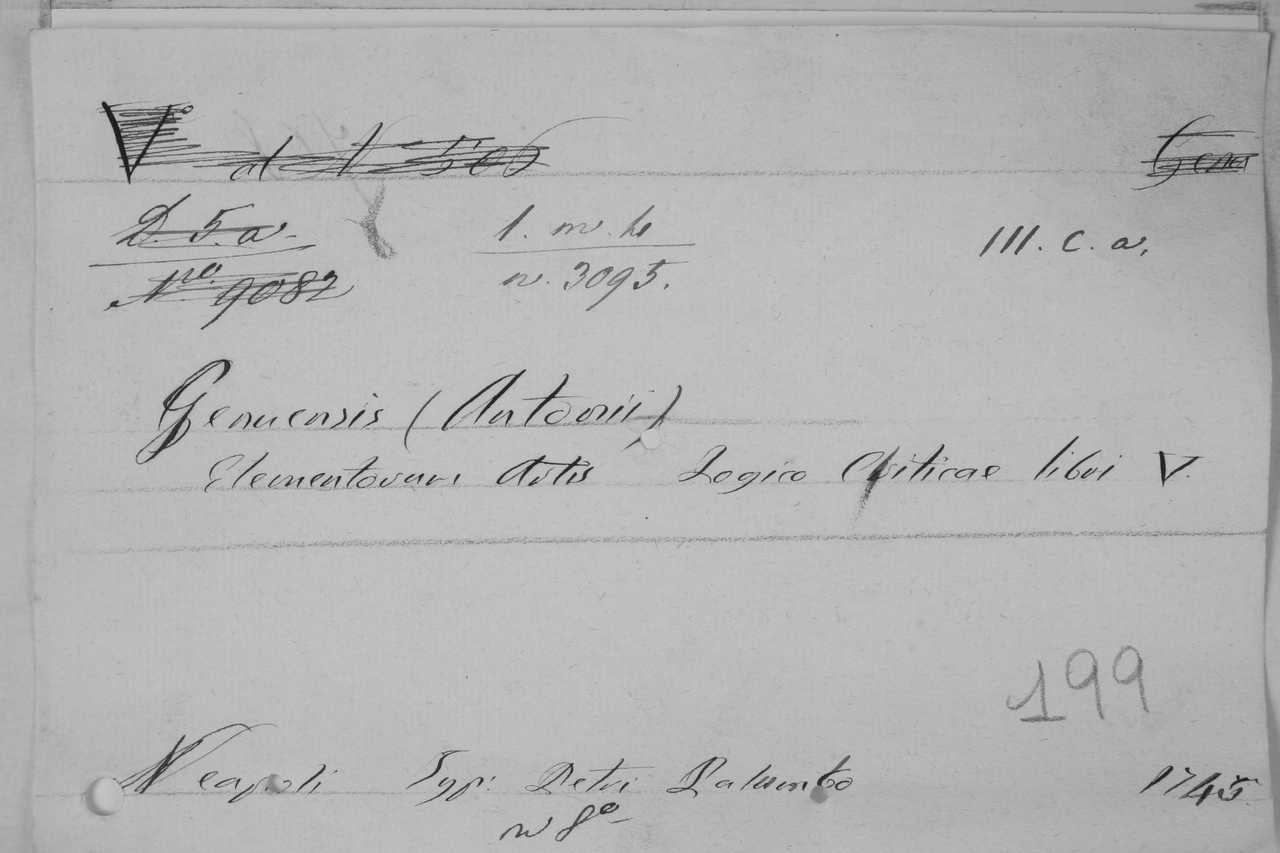 V
Gener
D. 5. a. 1. m. h. III. c. a.
Nro. 9082 n. 3095.
Genuensis (Antonii)
Elementorum Artis Logico Criticae libri V.
199
Neapoli Typ: Petri Palumbo 1745
in 8º